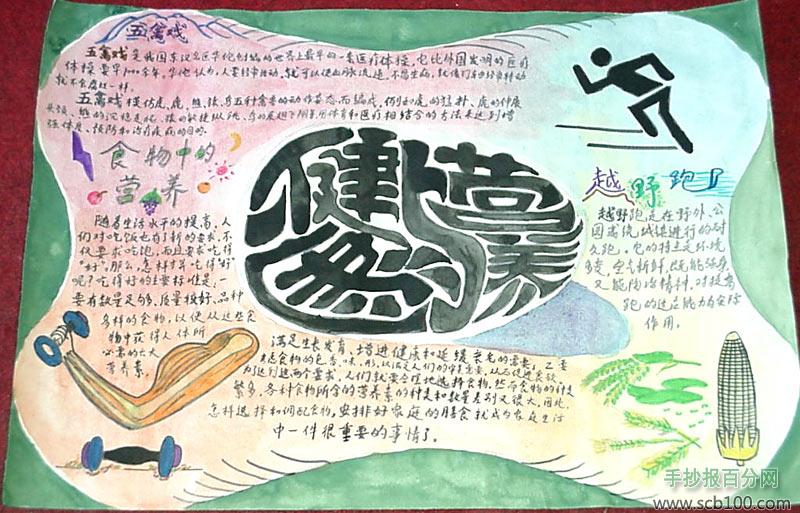 五禽戏
五禽戏是我国东汉名医华佗创编的世界上最早的一套医疗体操,它比外国发明的医疗
体操要早1000余年,华佗认为,人要经常活动,就可以使血脉流通,不患生病,就像门户由经常转动
就不会腐烂一样。
五禽戏模仿虎、鹿、熊、猿、鸟五种禽兽的动作姿态而编成,仿
强体质、预防和治疗疾病的目的。
食物中的
营养
随着生活水平的提高,人
们对吃饭也有了新的要求,不
仅要求吃饱,而且要求吃得
“好”。那么,怎样才算吃得“好”
呢?吃得好的主要标准是:一
要有数量足够、质量较好、品种
多样的食物,以便从这些食
物中获得人体所
必需的七大
营养素,
满足生长发育、增进健康和延缓衰老的需要。二要
为达到这两个要求,人们就要合理地选择食物,然而食物的种类
繁多,各种食物所含的营养素的种类和数量差别又很大,因此,
怎样选择和调配食物,安排好家庭的膳食就成为家庭生活
中一件很重要的事情了。
健与营养
越野跑
越野跑是在野外、公
园或绕城镇进行的耐
久跑。它的特点是环境
多变,空气新鲜,既能强身,
又能陶冶精神,对提高
跑的过程能力有实际
作用。
手抄报百分网
www.scb100.com